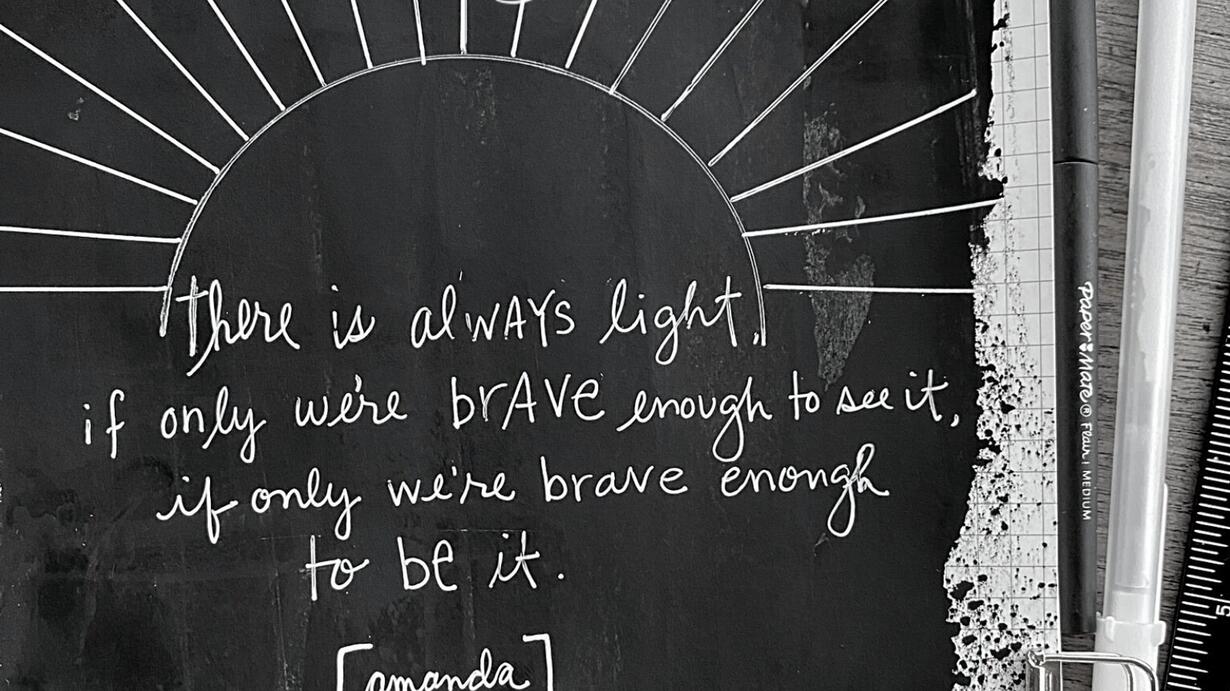 there is alWAYS light,
if only we're brAVE enough to see it,
if only we're brave enough
to be it.
[amanda]
Paper Mate ® Flair | MEDIUM
5